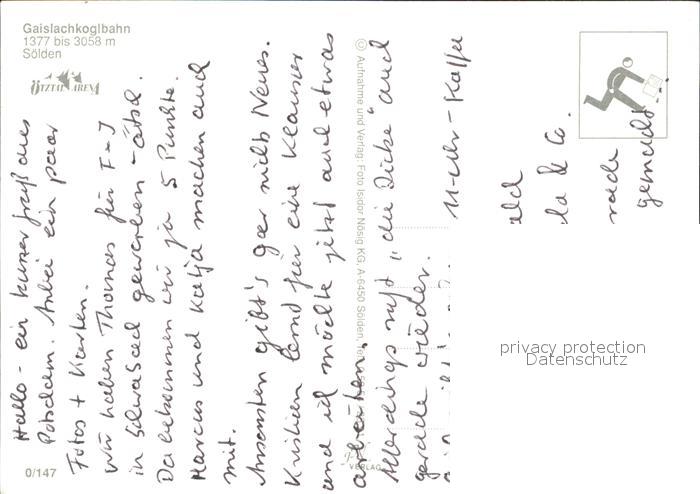 Gaislachkoglbahn
1377 bis 3058 m
Sölden
ÖTZTAL ARENA
Hallo - ein kurzer Gruß aus
Potsdam. Anbei ein paar
Fotos + Karten.
Wir haben Thomas für F-J
in Schwabach geworben -ätsch.
Da bekommen wir ja 5 Punkte.
Marcus und Katja machen auch
mit.
Ansonsten gibt's gar nichts Neues.
Kristien lernt für eine Klausur
und ich möchte jetzt auch etwas
arbeiten.
Allerdings ruft „die Dicke" auch
gerade wieder.
11-Uhr-Kaffee
ald
la & Co.
rade
gemacht
© Aufnahme und Verlag: Foto Isidor Nösig KG, A-6450 Sölden, Tel.
VERLAG
0/147
privacy protection
Datenschutz